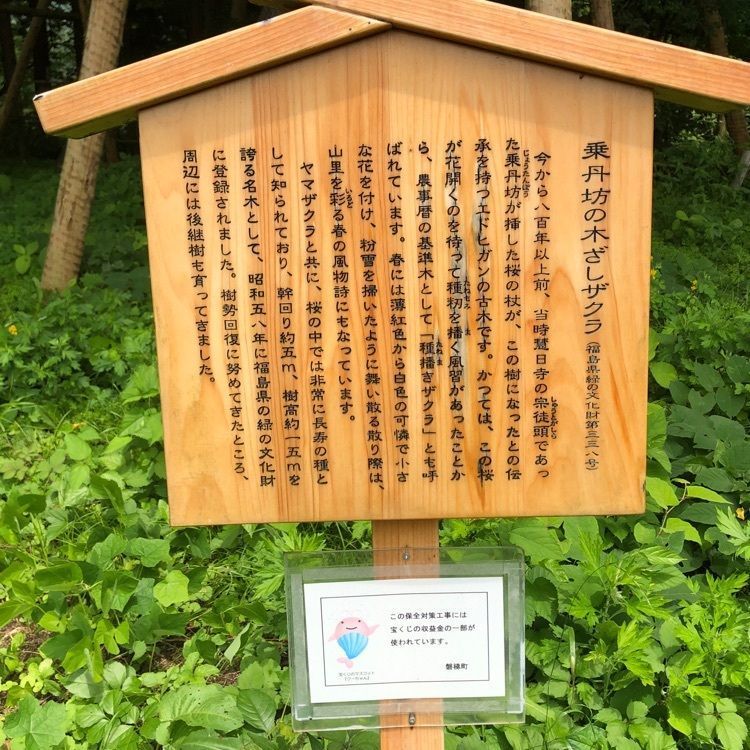 乗丹坊の木ざしザクラ（福島県緑の文化財第三三八号）
今から八百年以上前、当時慧日寺の宗徒頭であっ
た乗丹坊が挿した桜の杖が、この樹になったとの伝
承を持つエドヒガンの古木です。かつては、この桜
が花開くのを待って種籾を播く風習があったことか
ら、農事暦の基準木として「種播ぎザクラ」とも呼
ばれています。春には薄紅色から白色の可憐で小さ
な花を付け、粉雪を掃いたように舞い散る散り際は、
山里を彩る春の風物詩にもなっています。
ヤマザクラと共に、桜の中では非常に長寿の種と
して知られており、幹回り約五ｍ、樹高約一五ｍを
誇る名木として、昭和五八年に福島県の緑の文化財
に登録されました。樹勢回復に努めてきたところ、
周辺には後継樹も育ってきました。
この保全対策工事には
宝くじの収益金の一部が
使われています。
磐梯町
宝くじのマスコット
「クーちゃん」